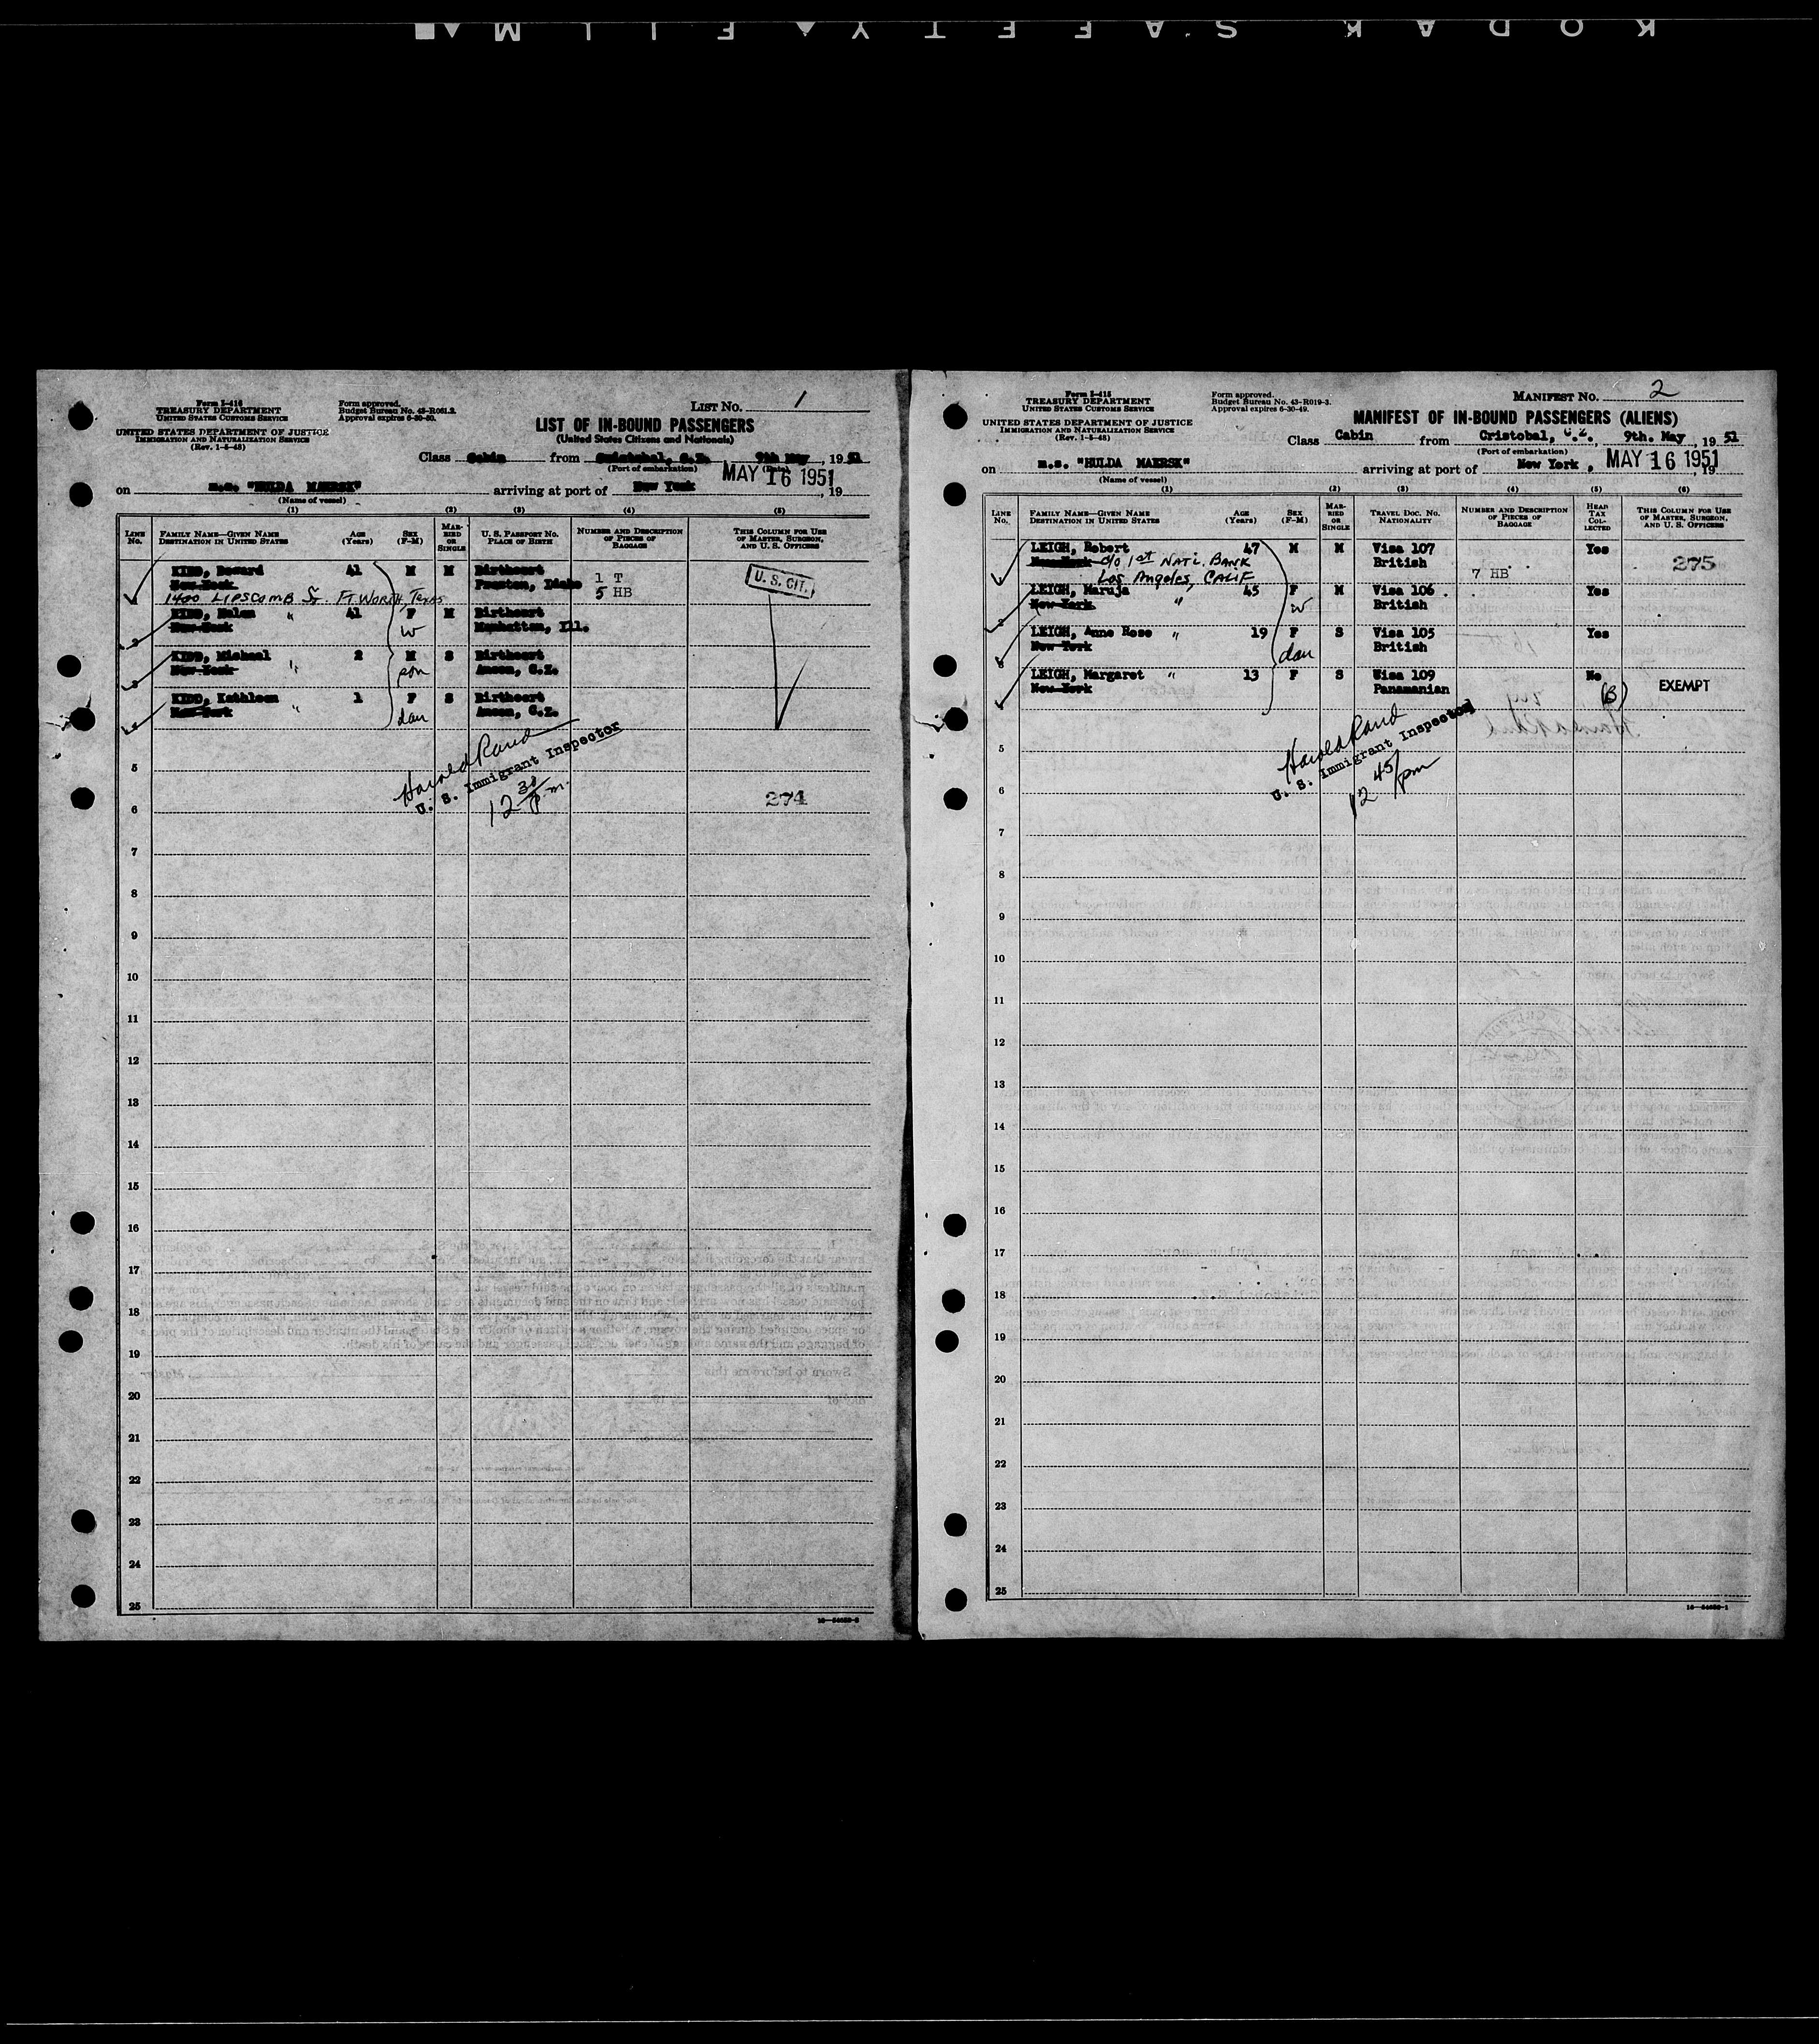 KODAK SAFETY FILM
Form I-416
TREASURY DEPARTMENT
UNITED STATES CUSTOMS SERVICE
UNITED STATES DEPARTMENT OF JUSTICE
IMMIGRATION AND NATURALIZATION SERVICE
(Rev. 1-5-48)
Form approved.
Budget Bureau No. 43-R061.2.
Approval expires 6-30-50.
LIST No. 1
LIST OF IN-BOUND PASSENGERS
(United States Citizens and Nationals)
Class Cabin from Cristobal, C.Z. 9th May, 19 51
(Port of embarkation) (Date)
MAY 16 1951
on m.s. "HULDA MAERSK" arriving at port of New York, 19
(Name of vessel)
(1) (2) (3) (4) (5)
LINE No. FAMILY NAME—GIVEN NAME DESTINATION IN UNITED STATES AGE (Years) SEX (F-M) MARRIED OR SINGLE U. S. PASSPORT No. PLACE OF BIRTH NUMBER AND DESCRIPTION OF PIECES OF BAGGAGE THIS COLUMN FOR USE OF MASTER, SURGEON, AND U. S. OFFICERS
KIDD, 41 M M Birthcert 1 T U. S. CIT.
New York Preston, Idaho 5 HB
1400 LIPSCOMB ST. FT. WORTH, TEXAS
2 KIDD, Helen " 41 F M Birthcert
New York W Manhattan, Ill.
3 KIDD, Michael 2 M S Birthcert
New York " son Ancon, C.Z.
4 KIDD, Kathleen 1 F S Birthcert
New York " dau Ancon, C.Z.
Harold Rand
U. S. Immigrant Inspector
12 30 p.m.
5
6 274
7
8
9
10
11
12
13
14
15
16
17
18
19
20
21
22
23
24
25
Form I-415
TREASURY DEPARTMENT
UNITED STATES CUSTOMS SERVICE
UNITED STATES DEPARTMENT OF JUSTICE
IMMIGRATION AND NATURALIZATION SERVICE
(Rev. 1-5-48)
Form approved.
Budget Bureau No. 43-R019-3.
Approval expires 6-30-49.
MANIFEST No. 2
MANIFEST OF IN-BOUND PASSENGERS (ALIENS)
Class Cabin from Cristobal, C.Z., 9th. May, 19 51
(Port of embarkation)
on m.s. "HULDA MAERSK" arriving at port of New York, MAY 16 1951, 19
(Name of vessel)
(1) (2) (3) (4) (5) (6)
LINE No. FAMILY NAME—GIVEN NAME DESTINATION IN UNITED STATES AGE (Years) SEX (F-M) MARRIED OR SINGLE TRAVEL DOC. No. NATIONALITY NUMBER AND DESCRIPTION OF PIECES OF BAGGAGE HEAD TAX COLLECTED THIS COLUMN FOR USE OF MASTER, SURGEON, AND U. S. OFFICERS
LEIGH, Robert 47 M M Visa 107 Yes
New York c/o 1st NAT'L. BANK British 7 HB 275
Los Angeles, CALIF
LEIGH, Maruja 45 F M Visa 106 Yes
New York " W British
LEIGH, Anne Rose " 19 F S Visa 105 Yes
New York dau British
LEIGH, Margaret " 13 F S Visa 109 No
New York Panamanian (B) EXEMPT
Harold Rand
U. S. Immigrant Inspector
12 45 pm
5
6
7
8
9
10
11
12
13
14
15
16
17
18
19
20
21
22
23
24
25